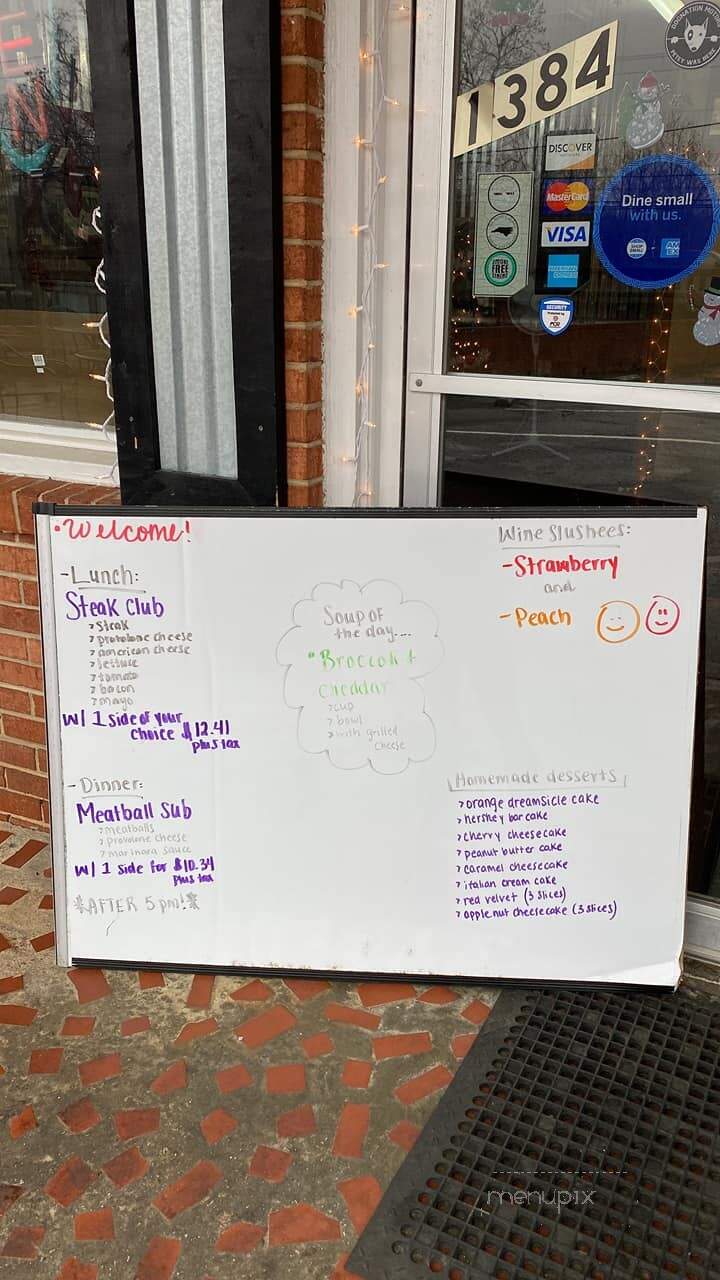 1384
DOGNATION MUTT
PETEY WAS HERE
DISCOVER
MasterCard
VISA
AMERICAN EXPRESS
SECURITY
FREE
Dine small
with us.
SHOP SMALL
AM EX
•Welcome!
-Lunch:
Steak Club
>steak
>provolone cheese
>american cheese
>lettuce
>tomato
>bacon
>mayo
w/ 1 side of your
choice $12.41
plus tax
-Dinner:
Meatball Sub
>meatballs
>provolone cheese
>marinara sauce
w/ 1 side for $10.34
plus tax
*AFTER 5 pm!*
Soup of
the day...
"Broccoli &
cheddar
>cup
>bowl
>with grilled
cheese
Wine Slushees:
-Strawberry
and
-Peach
Homemade desserts
>orange dreamsicle cake
>hershey bar cake
>cherry cheesecake
>peanut butter cake
>caramel cheesecake
>italian cream cake
>red velvet (3 slices)
>apple nut cheesecake (3 slices)
menupix